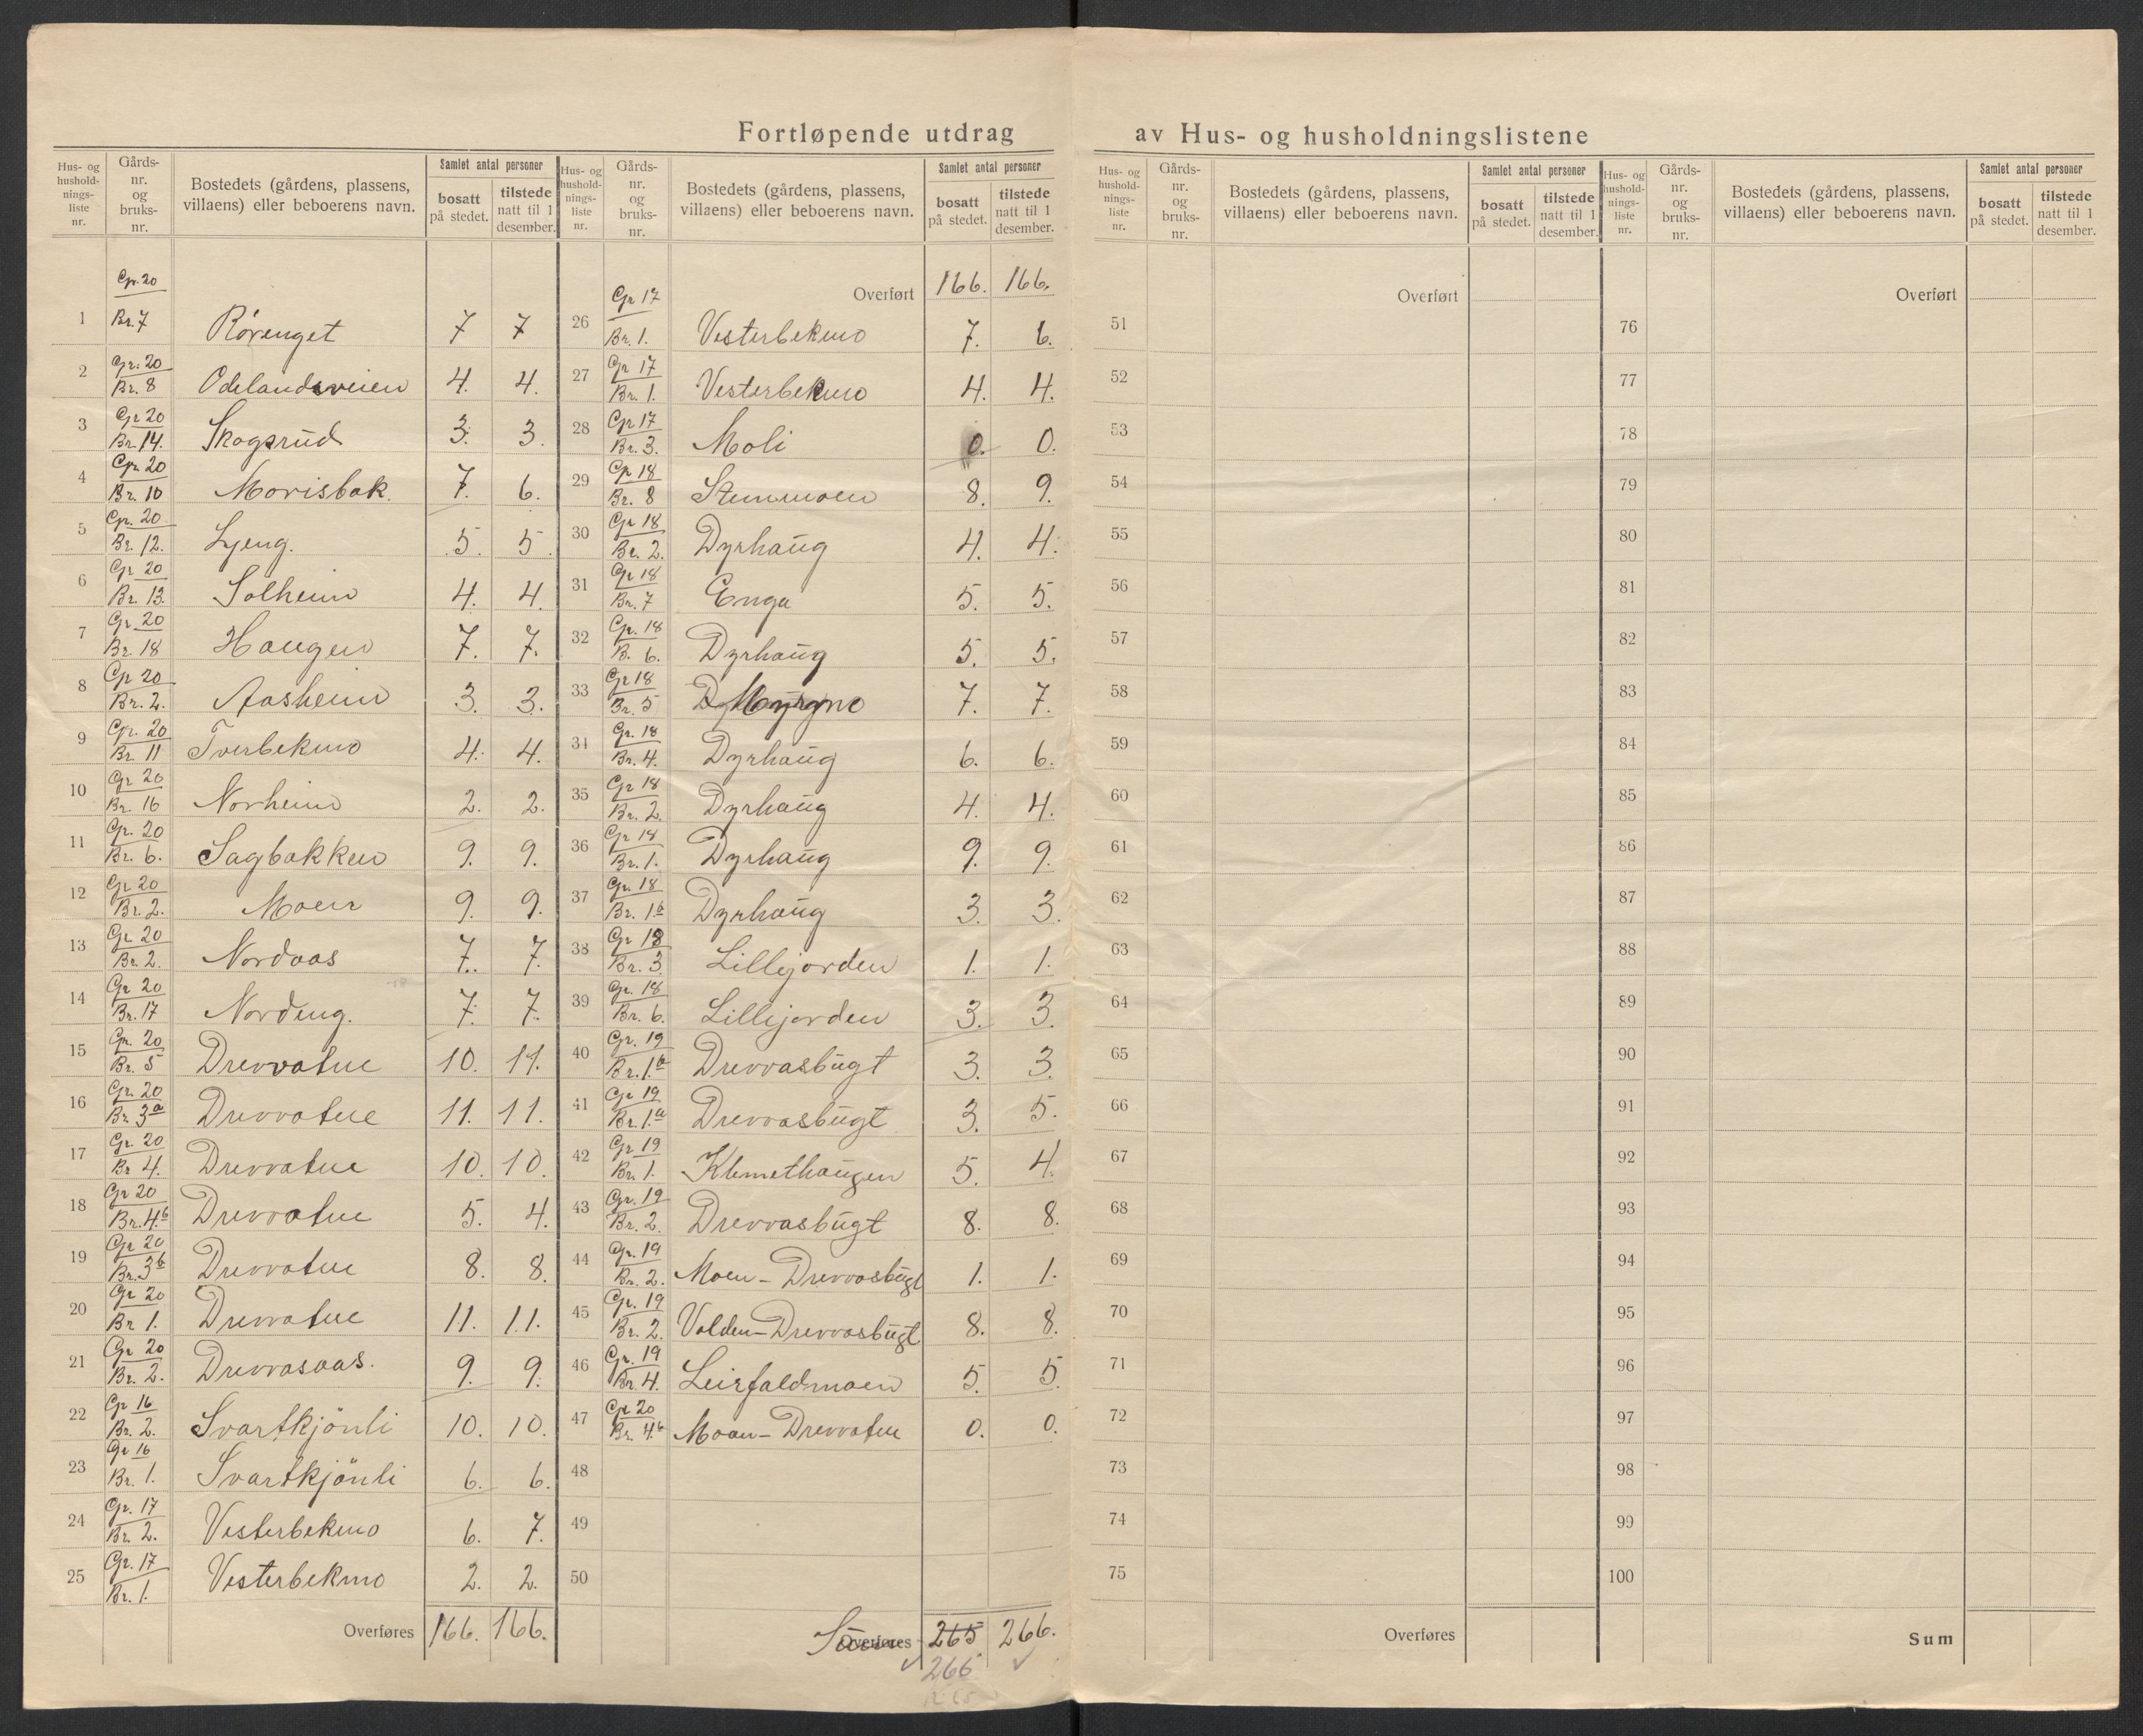 Fortløpende utdrag av Hus- og husholdningslistene
Hus- og husholdningsliste nr. Gårds-nr. og bruks-nr. Bostedets (gårdens, plassens, villaens) eller beboerens navn. Samlet antal personer bosatt på stedet. tilstede natt til 1 desember.
1 Gr. 20 Br. 7 Rörenget 7 7
2 Gr. 20 Br. 8 Odelandsveien 4. 4.
3 Gr 20 Br. 14. Skogsrud 3. 3.
4 Gr. 20 Br. 10 Morisbak. 7. 6.
5 Gr. 20 Br. 12. Lyeng. 5. 5.
6 Gr. 20 Br. 13. Solheim 4. 4.
7 Gr. 20 Br. 18 Haugen 7. 7.
8 Gr 20 Br. 2. Aasheim 3. 3.
9 Gr. 20 Br. 11 Tverbekmo 4. 4.
10 Gr 20 Br. 16 Norheim 2. 2.
11 Gr. 20 Br. 6. Sagbakken 9. 9.
12 Gr 20 Br. 2. Moen 9. 9.
13 Gr 20 Br. 2. Nordaas 7. 7.
14 Gr 20 Br. 17 Nordeng. 7. 7.
15 Gr. 20 Br. 5 Drevvatne 10. 11.
16 Gr. 20 Br. 3a Drevvatne 11. 11.
17 Gr. 20 Br 4. Drevvatne 10. 10.
18 Gr 20 Br. 4.b Drevvatne 5. 4.
19 Gr 20 Br. 3b Drevvatne 8. 8.
20 Gr 20 Br 1. Drevvatne 11. 11.
21 Gr 20 Br. 2. Drevvasaas. 9. 9.
22 Gr 16 Br. 2. Svartkjönli 10. 10.
23 Gr 16 Br. 1. Svartkjönli 6. 6.
24 Gr. 17 Br. 2. Vesterbekmo 6. 7.
25 Gr. 17 Br. 1. Vesterbekmo 2. 2.
Overføres 166. 166.
Hus- og husholdningsliste nr. Gårds-nr. og bruks-nr. Bostedets (gårdens, plassens, villaens) eller beboerens navn. Samlet antal personer bosatt på stedet. tilstede natt til 1 desember.
Overført 166. 166.
26 Gr 17 Br. 1. Vesterbekmo 7. 6.
27 Gr 17 Br. 1. Vesterbekmo 4. 4.
28 Gr 17 Br. 3. Moli 0. 0.
29 Gr 18 Br. 8 Stemmoen 8. 9.
30 Gr 18 Br. 2. Dyrhaug 4. 4.
31 Gr 18 Br. 7 Enga 5. 5.
32 Gr. 18 B. 6. Dyrhaug 5. 5.
33 Gr 18 Br. 5 7. 7.
34 Gr. 18 Br. 4. Dyrhaug 6. 6.
35 Gr 18 Br. 2. Dyrhaug 4. 4.
36 Gr 18 Br. 1. Dyrhaug 9. 9.
37 Gr. 18 Br. 1b Dyrhaug 3. 3.
38 Gr 18 Br. 3. Lillejorden 1. 1.
39 Gr. 18 Br. 6. Lillejorden 3. 3.
40 Gr. 19 Br. 1b Drevvasbugt 3. 3.
41 Gr 19 Br. 1a Drevvasbugt 3. 5.
42 Gr 19 Br. 1. Klemethaugen 5. 4.
43 Gr. 19 Br. 2. Drevvasbugt 8. 8.
44 Gr. 19 Br. 2. Moen - Drevvasbugt 1. 1.
45 Gr. 19 Br. 2. Volden - Drevvasbugt 8. 8.
46 Gr. 19 Br. 4. Leirfaldmoen 5. 5.
47 Gr 20 Br. 4.b Moen - Drevvatne 0. 0.
48
49
50
Overføres Sum 265 266.
266
Hus- og husholdningsliste nr. Gårds-nr. og bruks-nr. Bostedets (gårdens, plassens, villaens) eller beboerens navn. Samlet antal personer bosatt på stedet. tilstede natt til 1 desember.
Overført
51
52
53
54
55
56
57
58
59
60
61
62
63
64
65
66
67
68
69
70
71
72
73
74
75
Overføres
Hus- og husholdningsliste nr. Gårds-nr. og bruks-nr. Bostedets (gårdens, plassens, villaens) eller beboerens navn. Samlet antal personer bosatt på stedet. tilstede natt til 1 desember.
Overført
76
77
78
79
80
81
82
83
84
85
86
87
88
89
90
91
92
93
94
95
96
97
98
99
100
Sum